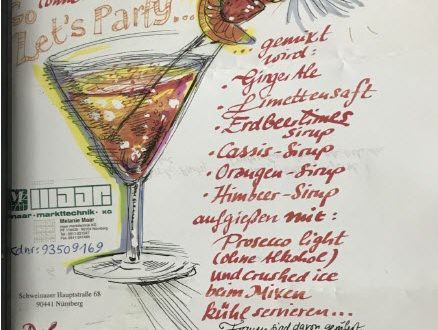 So
Let's Party...
... gemixt
wird:
· GingerAle
· Limettensaft
· Erdbeertimes
Sirup
· Cassis-Sirup
· Orangen-Sirup
· Himbeer-Sirup
aufgießen mit:
Prosecco light
(ohne Alkohol)
und crushed ice
beim Mixen
kühl servieren...
maar
maar-markttechnik · KG
Melanie Maar
90441 Nürnberg
dnr: 93509469
Schweinauer Hauptstraße 68
90441 Nürnberg